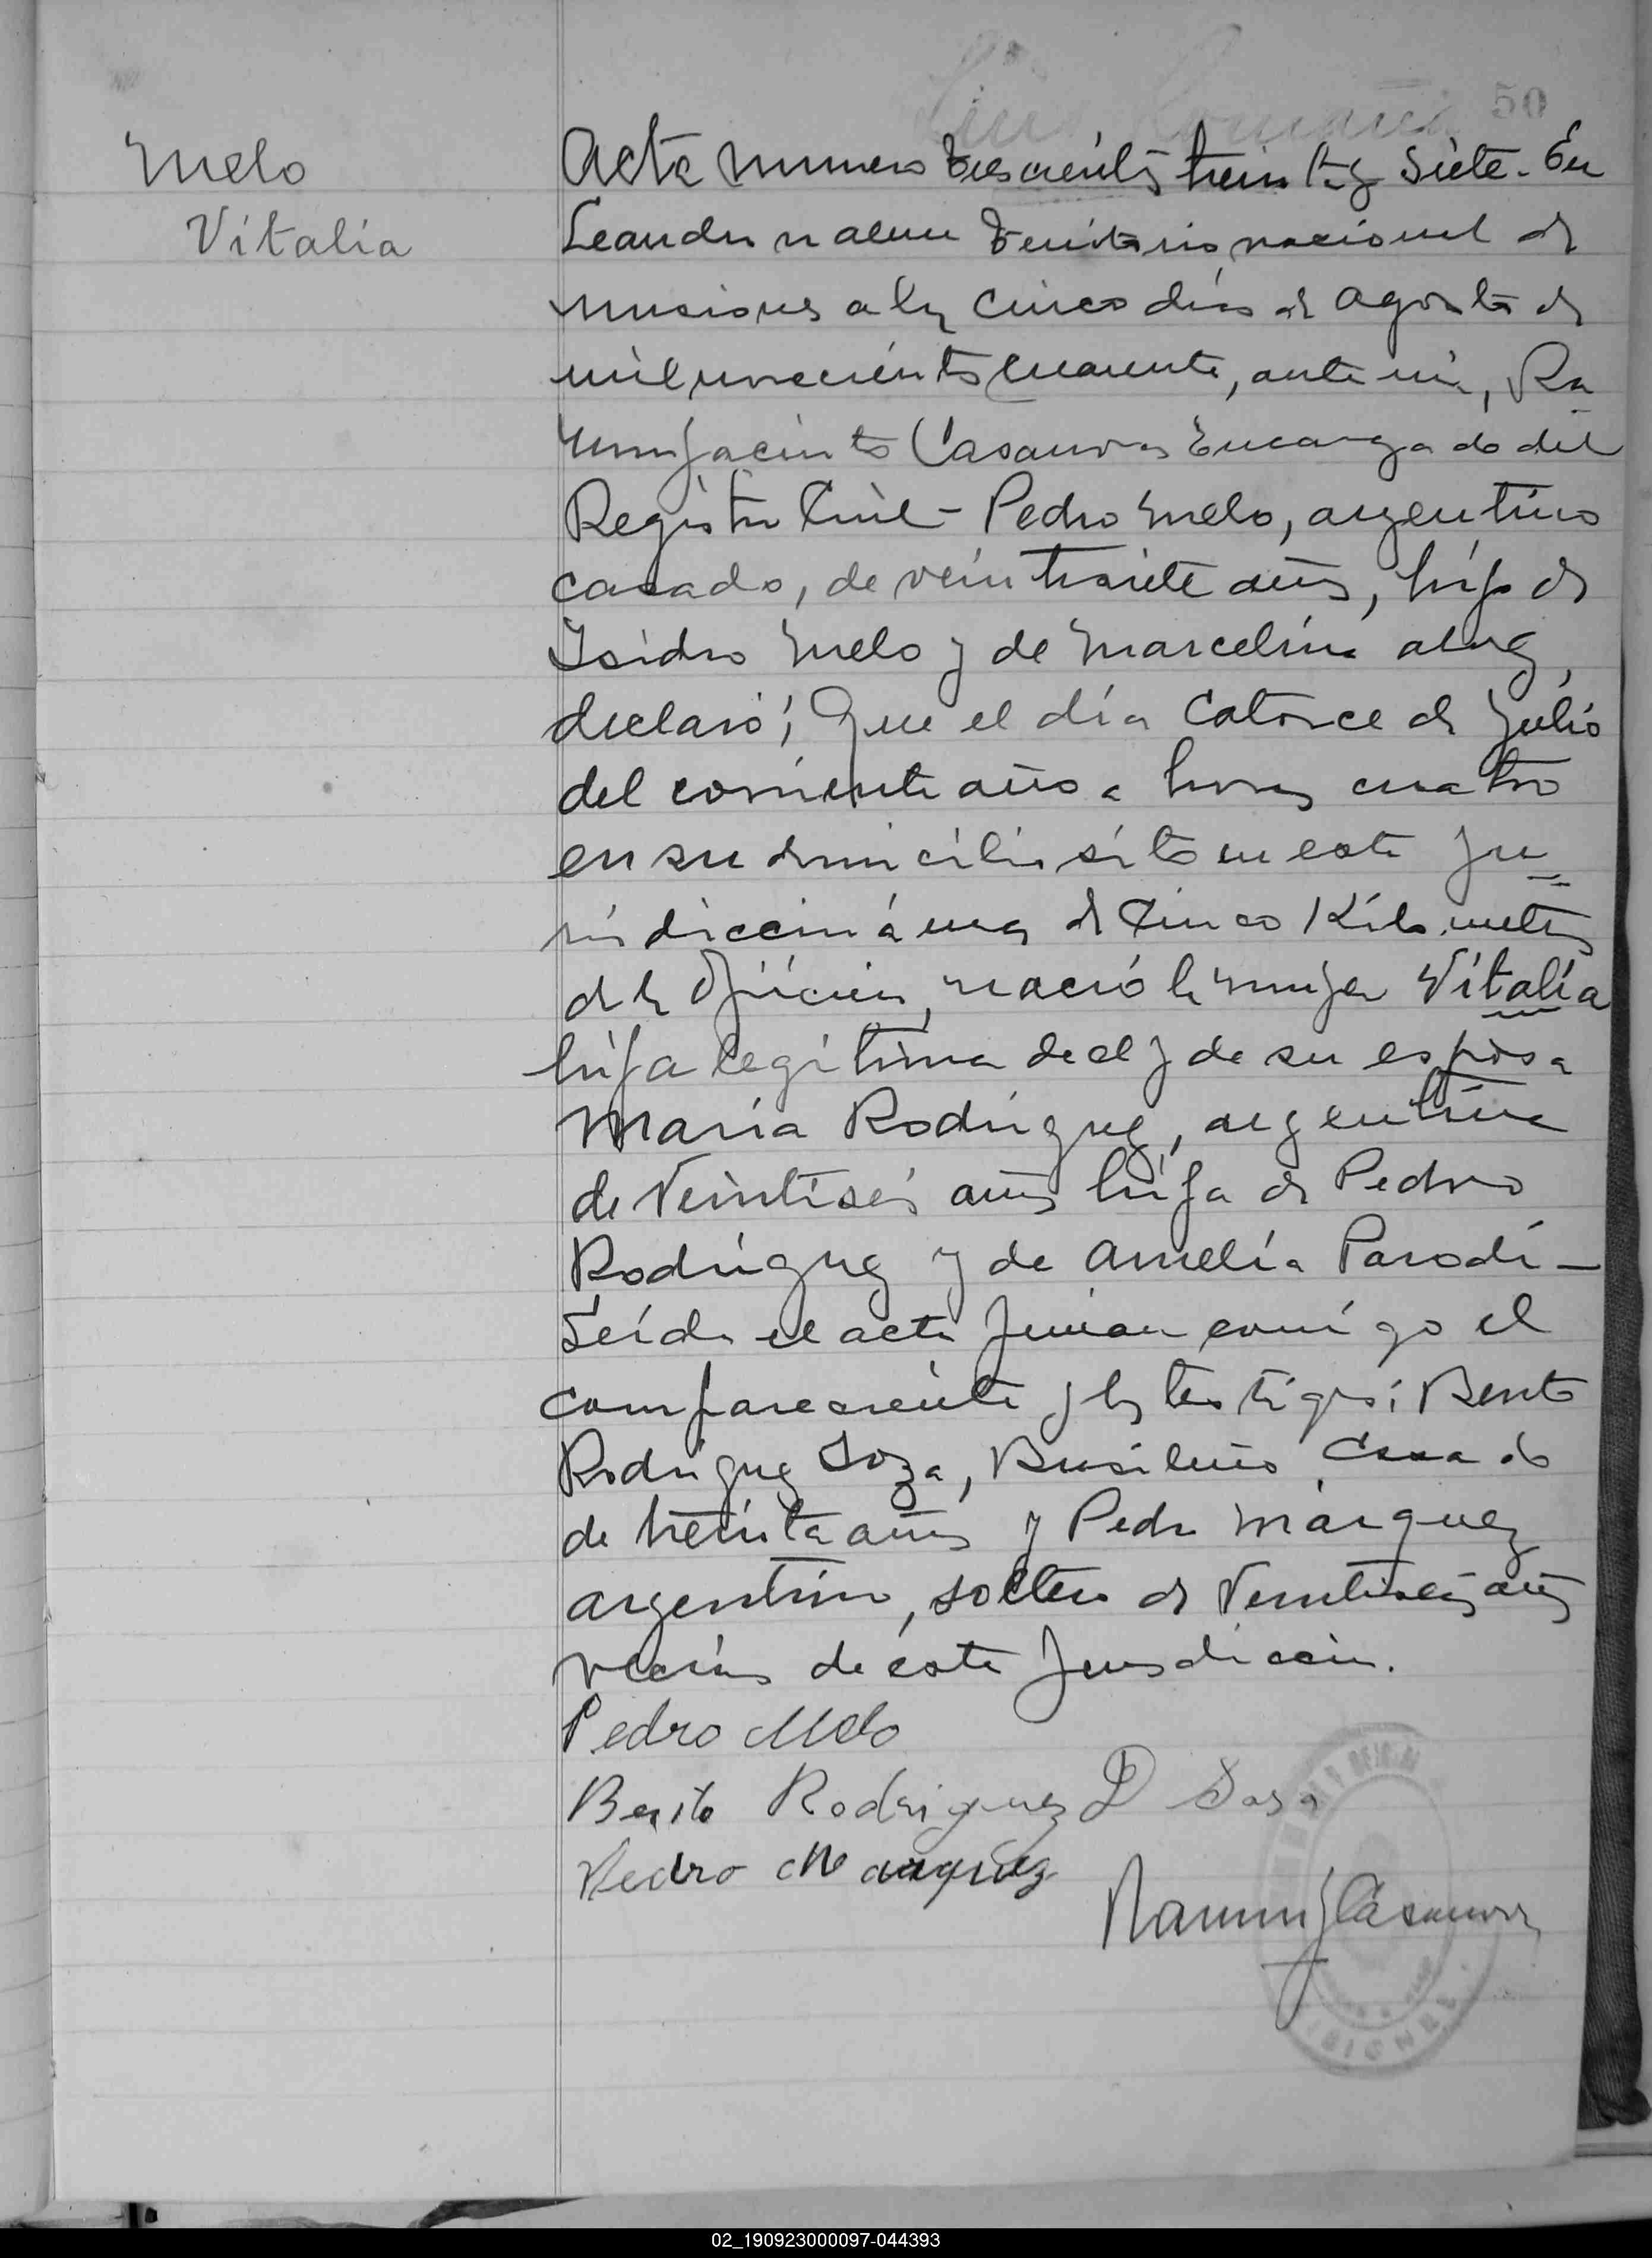 50
Melo
Vitalia
Acta numero trescientos treinta y siete. En
Leandro N Alem Territorio nacional de
Misiones a los cinco días de Agosto de
mil novecientos cuarenta, ante mi, Ra
mon Jacinto Casanovas Encargado del
Registro Civil - Pedro Melo, argentino
casado, de veintisiete años, hijo de
Isidro Melo y de Marcelina
declaró; Que el día Catorce de Julio
del corriente año a horas cuatro
en su domicilio sito en esta Ju
risdicción á unos de Cinco Kilometros
de la Oficina, nació la mujer Vitalia
hija legítima de el y de su esposa
María Rodriguez, argentina
de Veintiseis años hija de Pedro
Rodriguez y de Amelia Parodi -
Leída el acta firman conmigo el
compareciente y los testigos; Bento
Rodriguez Soza, Brasileño Casado
de treinta años y Pedro Márquez
argentino, soltero de Veintiseis años
vecinos de esta Jurisdicción.
Pedro Melo
Benito Rodriguez D Sosa
Pedro Marquez
Ramon J Casanovas
MISIONES
02_190923000097-044393